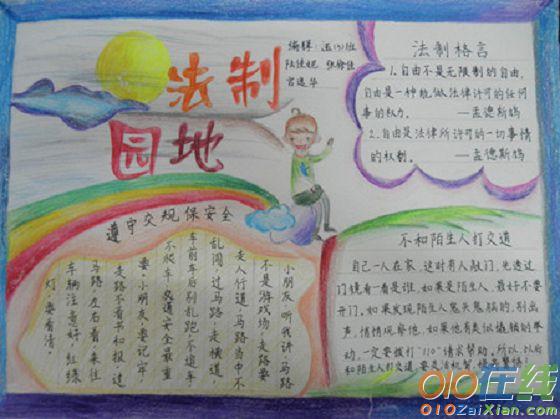 法制
园地
编辑：
法制格言
1.自由不是无限制的自由,
自由是一种能做法律许可的任何
事的权力。——孟德斯鸠
2.自由是法律所许可的一切事情
的权利。——孟德斯鸠
遵守交规保安全
小朋友,听我讲,马路
不是游戏场,走路要
走人行道,马路当中不
乱闯,过马路,走横道
车前车后别乱跑,不追车
不爬车,交通安全最重
要,小朋友要记牢
走路不看书和报,过
马路,左右看来往
车辆注意好,红绿
灯,要看清。
不和陌生人打交道
自己一人在家,这时有人敲门,先透过
门镜看一看是谁,如果是陌生人,最好不要
开门,如果发现陌生人鬼鬼祟祟的,别出
声,悄悄观察他,如果他有类似撬锁的举
动,一定要拨打"110"请求帮助。所以,以后
和陌生人打交道,要灵活机智,
010在线
010ZaiXian.com